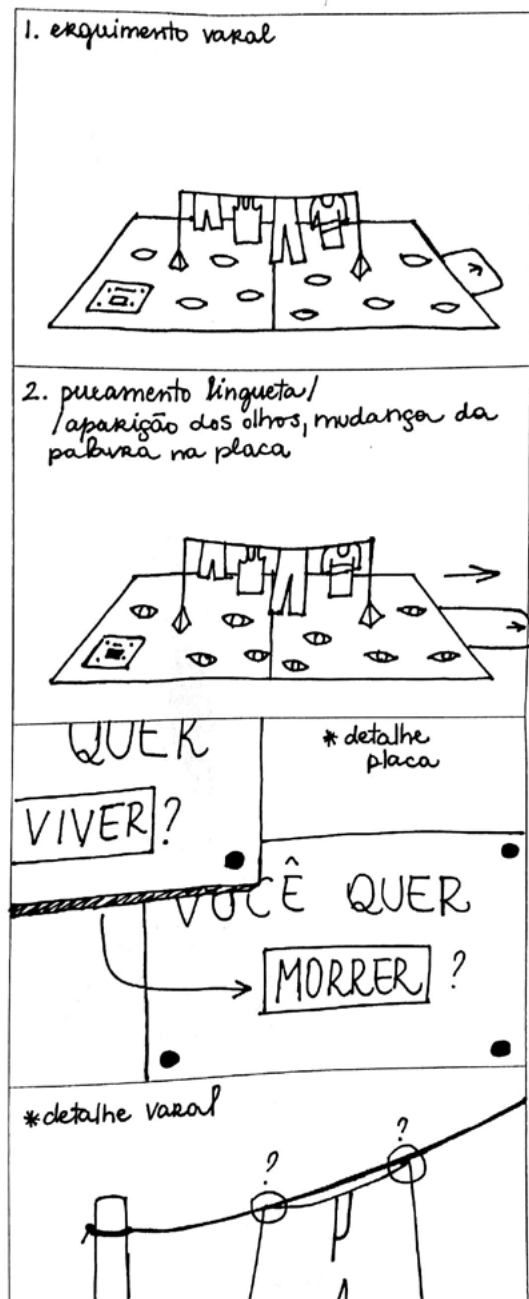 1. erguimento varal
2. puxamento lingueta/
/aparição dos olhos, mudança da
palavra na placa
QUER
VIVER ?
* detalhe
placa
VOCÊ QUER
MORRER ?
* detalhe varal
?
?